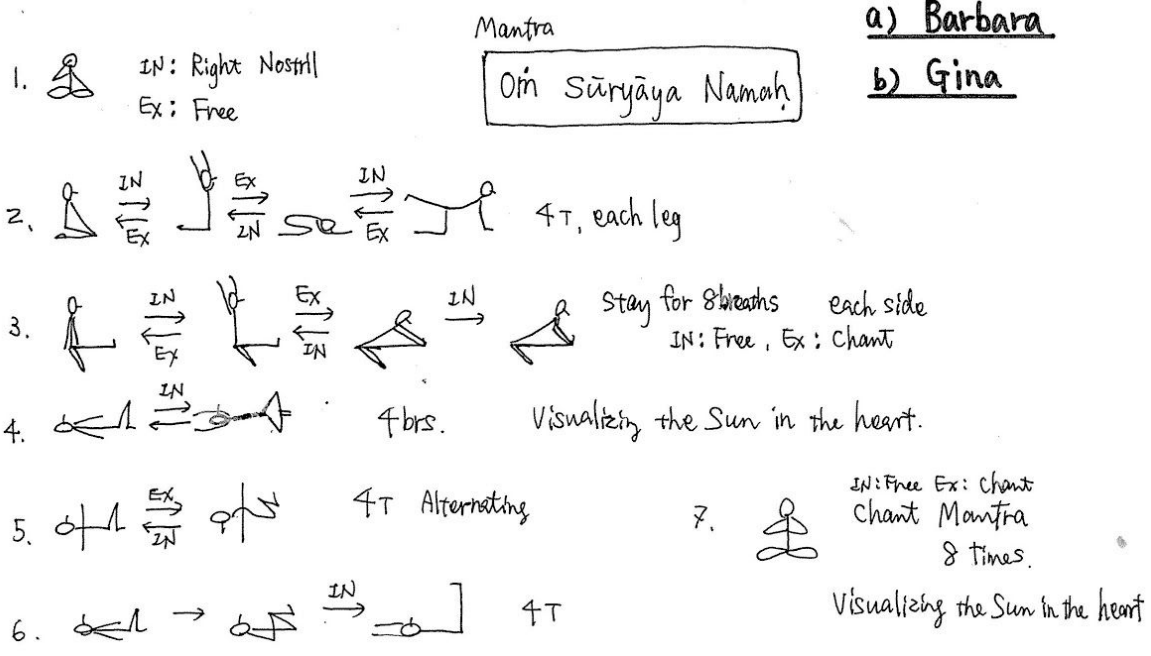 a) Barbara
b) Gina
Mantra
Oṁ Sūryāya Namaḥ
1. IN: Right Nostril
Ex: Free
2. IN Ex Ex IN IN Ex 4T, each leg
3. IN Ex Ex IN IN Stay for 8breaths each side
IN: Free, Ex: Chant
4. IN 4brs. Visualizing the Sun in the heart.
5. Ex IN 4T Alternating
6. IN 4T
7. IN: Free Ex: Chant
Chant Mantra
8 times.
Visualizing the Sun in the heart